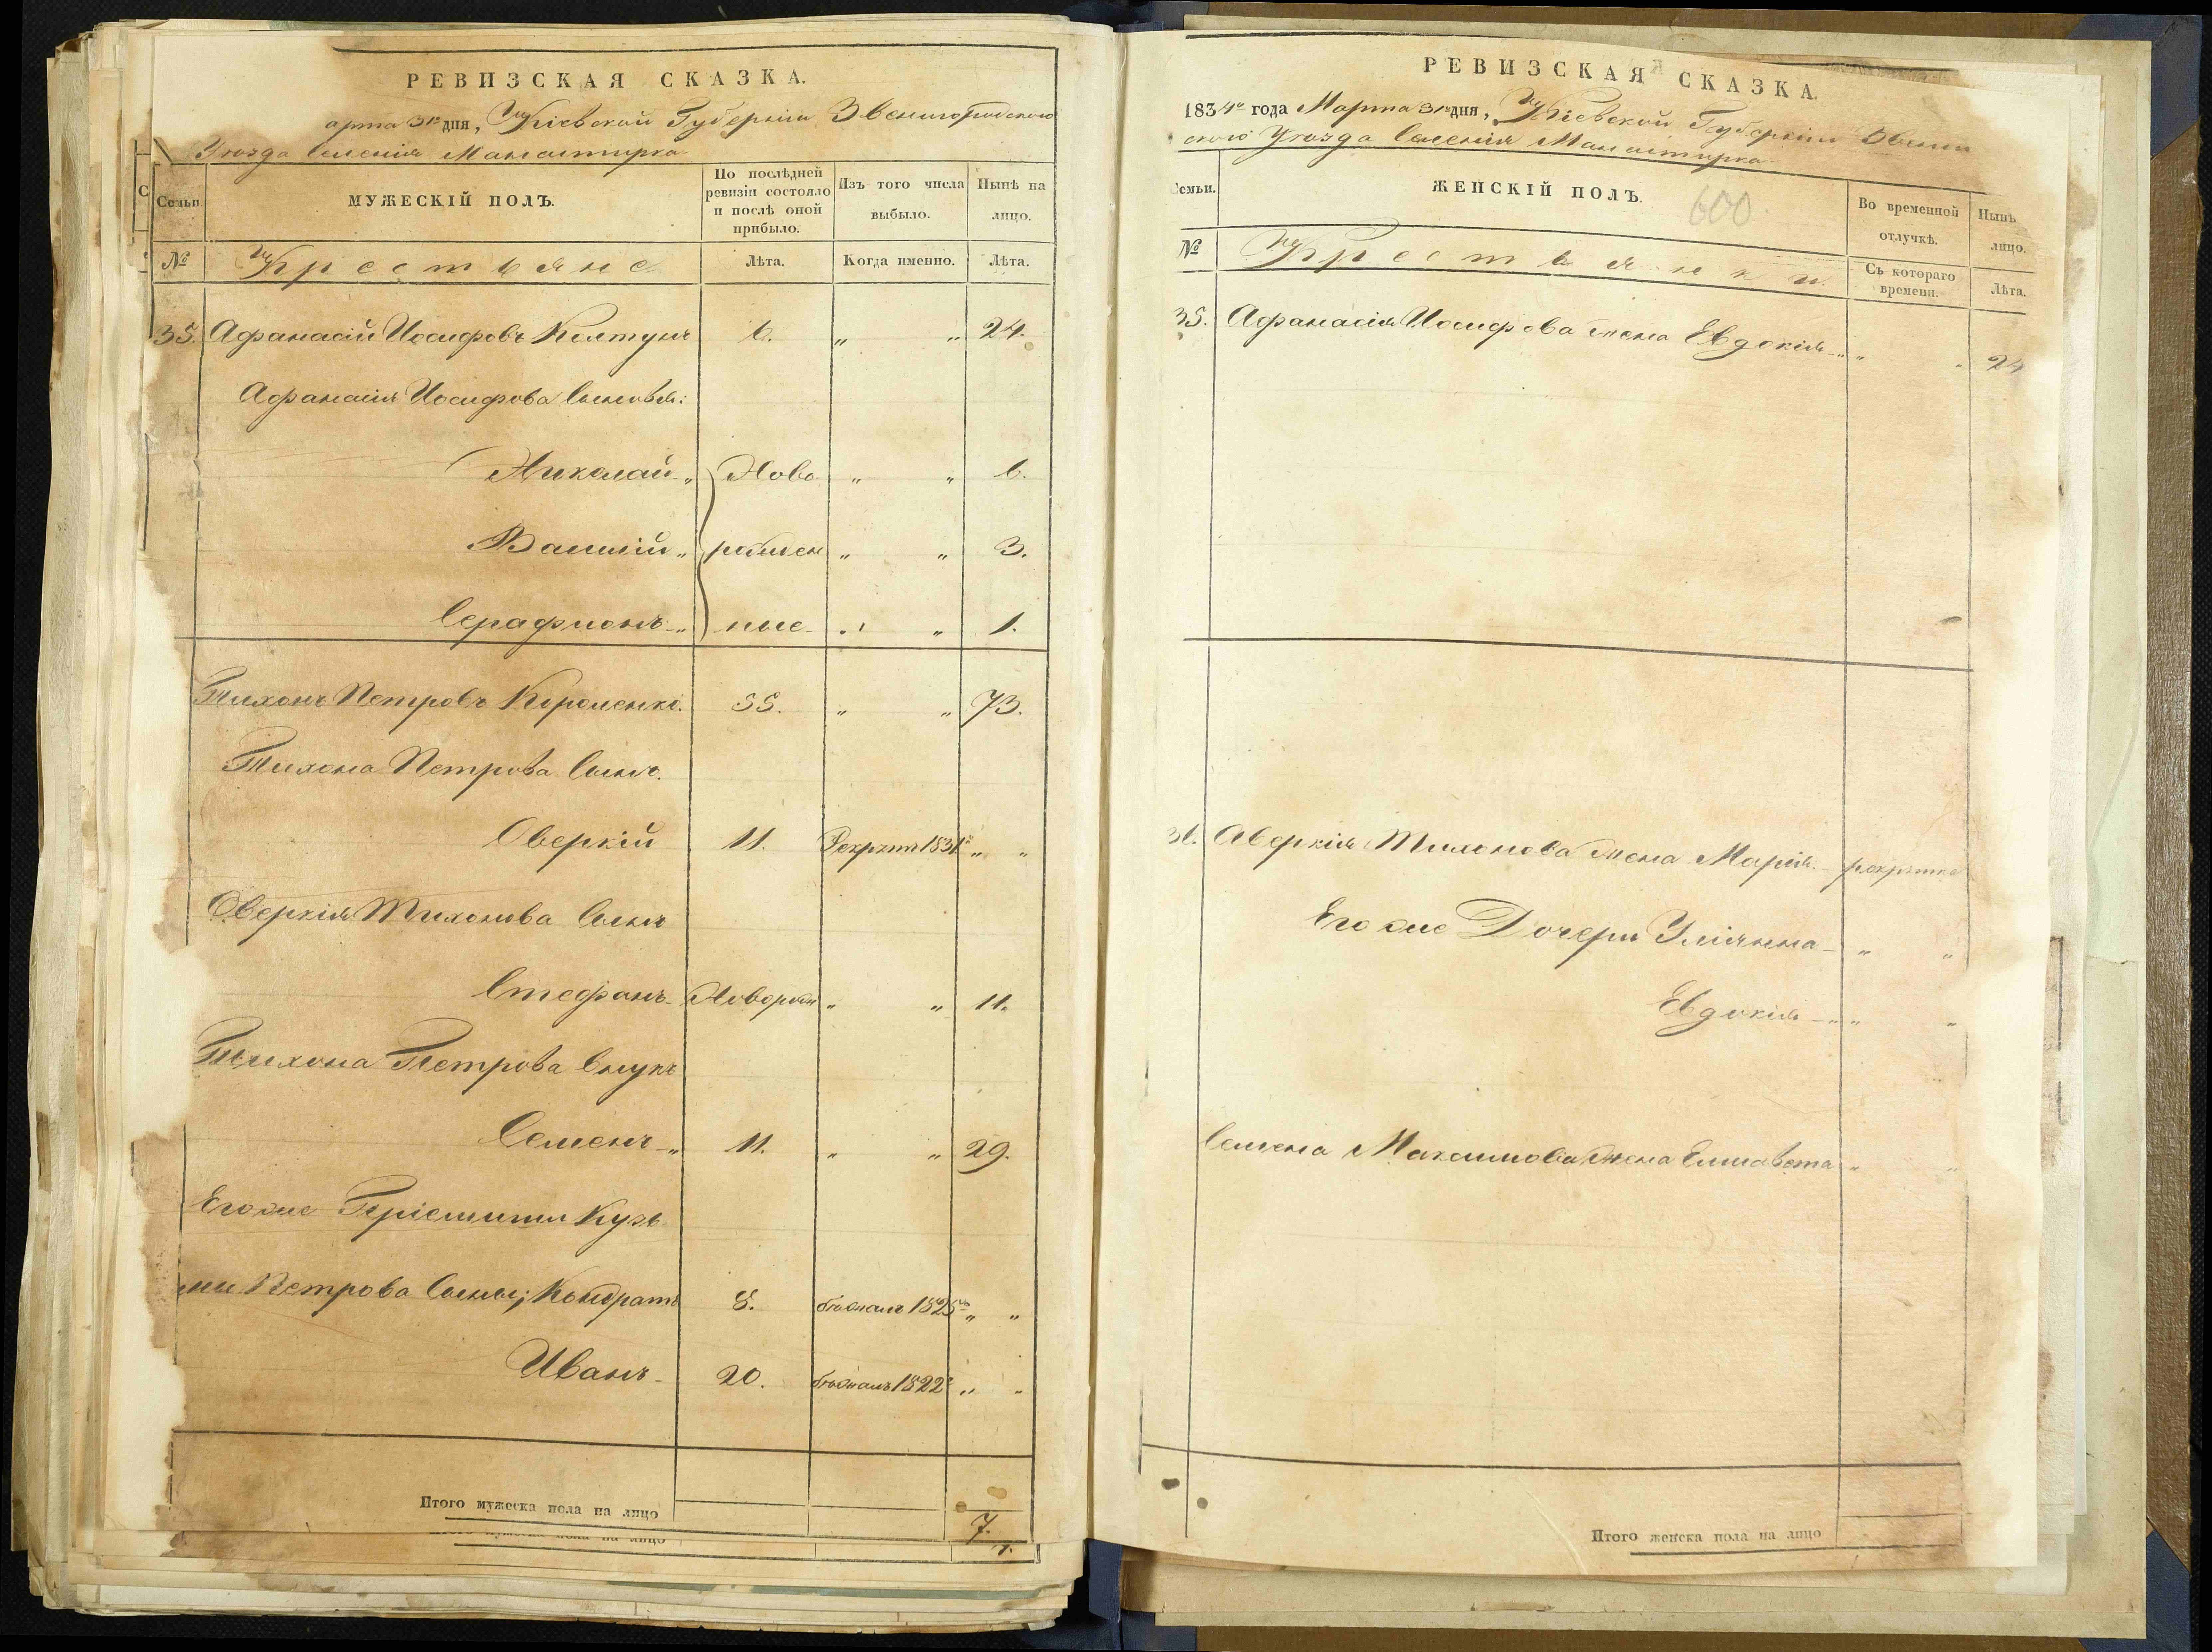 РЕВИЗСКАЯ СКАЗКА.
арта 31го дня, Кіевской Губерніи Звенигородского
Уѣзда Селенія Манастирка
Семьи.
МУЖЕСКІЙ ПОЛЪ.
По послѣдней ревизіи состояло и послѣ оной прибыло.
Изъ того числа выбыло.
Нынѣ на лицо.
№
Крестьяне
Лѣта.
Когда именно.
Лѣта.
35. Афанасій Иосифовъ Колтунъ 6. „ „ 24.
Афанасія Иосифова Сыновья:
Николай „ Ново „ „ 6.
Василій „ рожден „ „ 3.
Серафионъ „ ные „ „ 1.
Тихонъ Петровъ Короленко. 55. „ „ 73.
Тихона Петрова Сынъ.
Оверкій 11. Рекрутъ 1831го „ „
Оверкія Тихонова Сынъ
Стефанъ Новорож „ „ 11.
Тихона Петрова Внукъ
Семенъ „ 11. „ „ 29.
Егоже Пріемыши Кузь
мы Петрова Сыны; Кондратъ 8. бѣжалъ 1825го „ „
Иванъ 20. бѣжалъ 1822го „ „
Итого мужеска пола на лицо 7.
РЕВИЗСКАЯ СКАЗКА.
1834го года Марта 31го дня, Кіевской Губерніи Звени
ского Уѣзда Селенія Манастирка
Семьи.
ЖЕНСКІЙ ПОЛЪ.
600
Во временной отлучкѣ.
Нынѣ
лицо.
№
Крестьянки
Съ котораго времени.
Лѣта.
35. Афанасія Иосифова жена Евдокія „ „ 24
36. Аверкія Тихонова жена Марія рекрутка
Егоже Дочери Уліянна „ „
Евдокія „ „
Семена Максимова жена Елисавета „ „
Итого женска пола на лицо